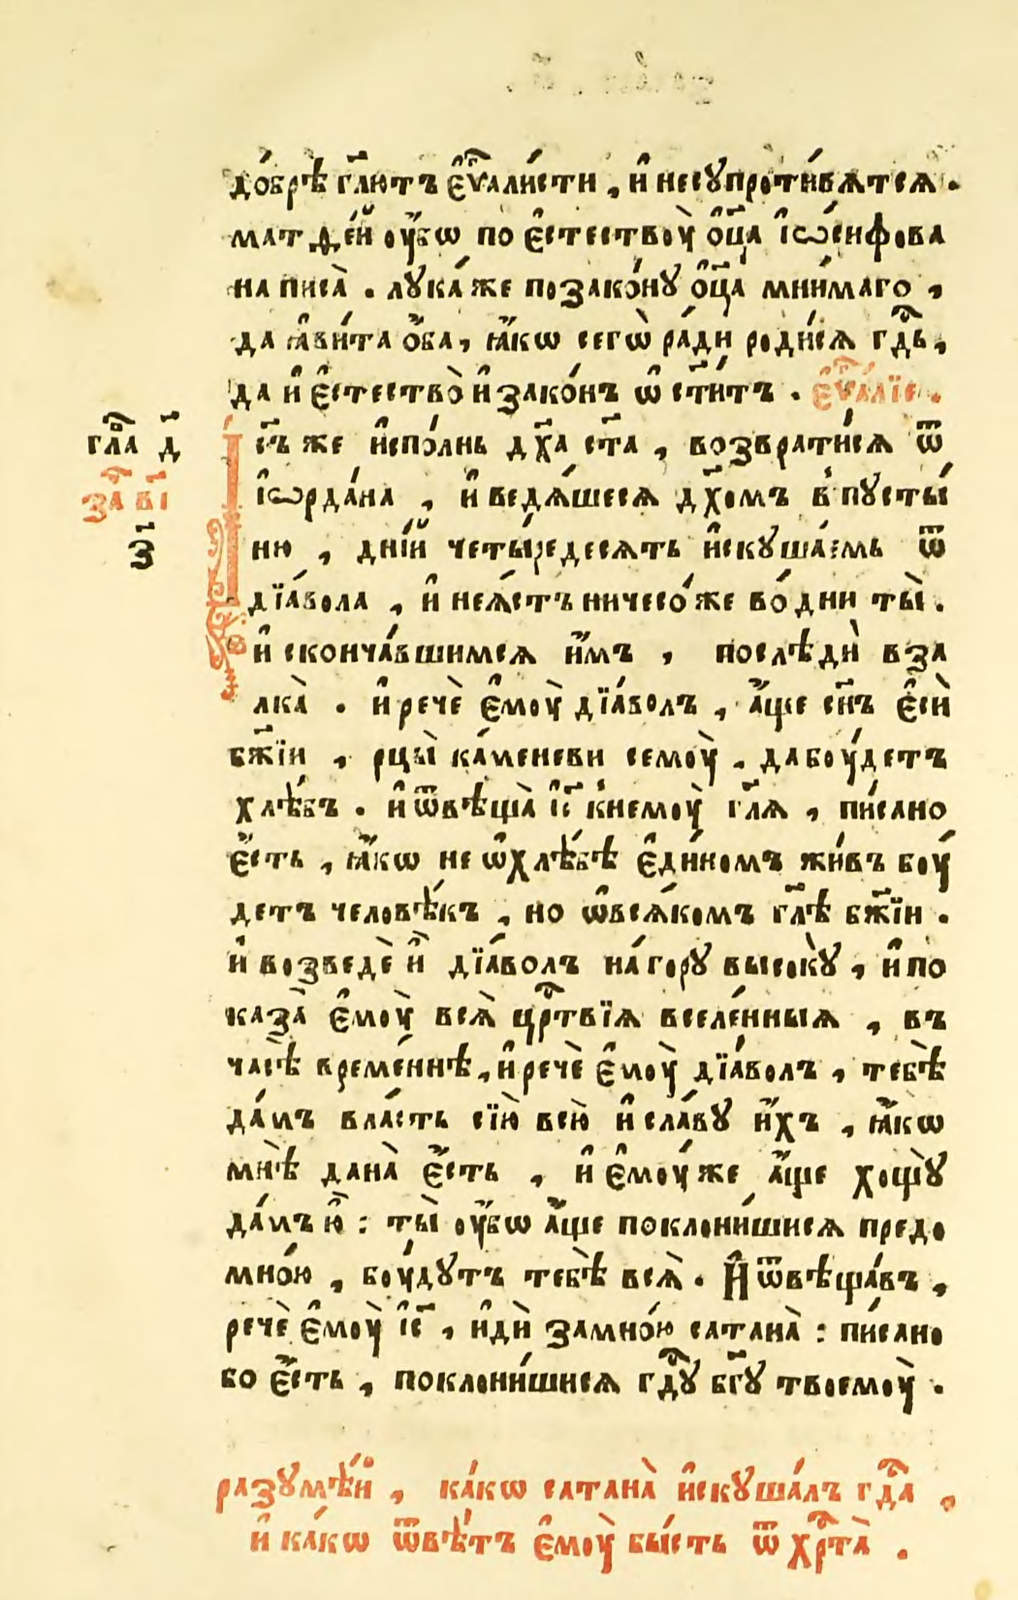 до́брѣ гл҃ютъ є҆ѵⷢ҇али́сти , и҆ несꙋпроти́вѧтсѧ .
матѳе́й ᲂу҆́бѡ по є҆стествоу̀ ѻ҆ц҃а і҆ѡ́сифова
написа̀ . лꙋка́же позако́нꙋ ѻ҆ц҃а̀ мни́маго ,
да ꙗ҆ви́та ѻ҆́ба , ꙗ҆́кѡ сегѡ̀ ра́ди роди́сѧ гдⷭ҇ь ,
да и҆ є҆стество̀ и҆ зако́нъ ѡ҆ст҃и́тъ . є҆ѵⷢ҇а́лїе .
гла҃ д҃
І҆с҃ъ же и҆спо́лнь дх҃а ст҃а , возврати́сѧ ѿ
за҃ в҃і
і҆ѡрда́на , и҆ ведѧ́шесѧ дх҃омъ в̾пꙋсты́
з҃
ню , дні́й четы́редесѧть и҆скꙋша́емь ѿ
дїа́вола , и҆ неꙗ́стъ ничесо́же во́дни ты̀ .
и҆ сконча́вшимсѧ и҆̀мъ , послѣдѝ вза
лка̀ . и҆ речѐ є҆моу̀ дїа́волъ , а҆́ще сн҃ъ є҆сѝ
бж҃їи , рцы̀ ка́меневи семоу̀ . дабоу́детъ
хлѣ́бъ . и҆ ѿвѣща̀ і҆с҃ к̾немоу̀ гл҃ѧ , пи́сано
є҆́сть , ꙗ҆́кѡ не ѡ҆хлѣ́бѣ є҆ди́номъ жи́въ боу́
детъ человѣ́къ , но ѡ҆всѧ́комъ гл҃ѣ бж҃їи .
и҆ возведѐ и҆̀ дїа́волъ на́горꙋ высокꙋ̀ , и҆ по
каза̀ є҆моу̀ всѧ̀ црⷭ҇твїѧ вселе́нныѧ , въ
ча́сѣ време́ннѣ , и҆ речѐ є҆моу̀ дїа́волъ , тебѣ̀
да́мъ вла́сть сїю̀ всю̀ и҆ сла́вꙋ и҆́хъ , ꙗ҆́кѡ
мнѣ̀ дана̀ є҆́сть , и҆ є҆моу́же а҆́ще хощꙋ̀
да́мъ ю҆̀ : ты̀ ᲂу҆́бѡ а҆́ще поклони́шисѧ предо
мно́ю , боу́дꙋтъ тебѣ̀ всѧ̀ . И҆ ѿвѣща́въ ,
речѐ є҆моу̀ і҆с҃ , и҆дѝ замно́ю сатана̀ : пи́сано
бо є҆́сть , поклони́шисѧ гдⷭ҇ꙋ бг҃ꙋ твоемоу̀ .
разꙋмѣ́й , ка́кѡ сатана̀ и҆скꙋша́лъ гдⷭ҇а ,
и҆ ка́кѡ ѿвѣ́тъ є҆моу̀ бы́сть ѿ хрⷭ҇та̀ .